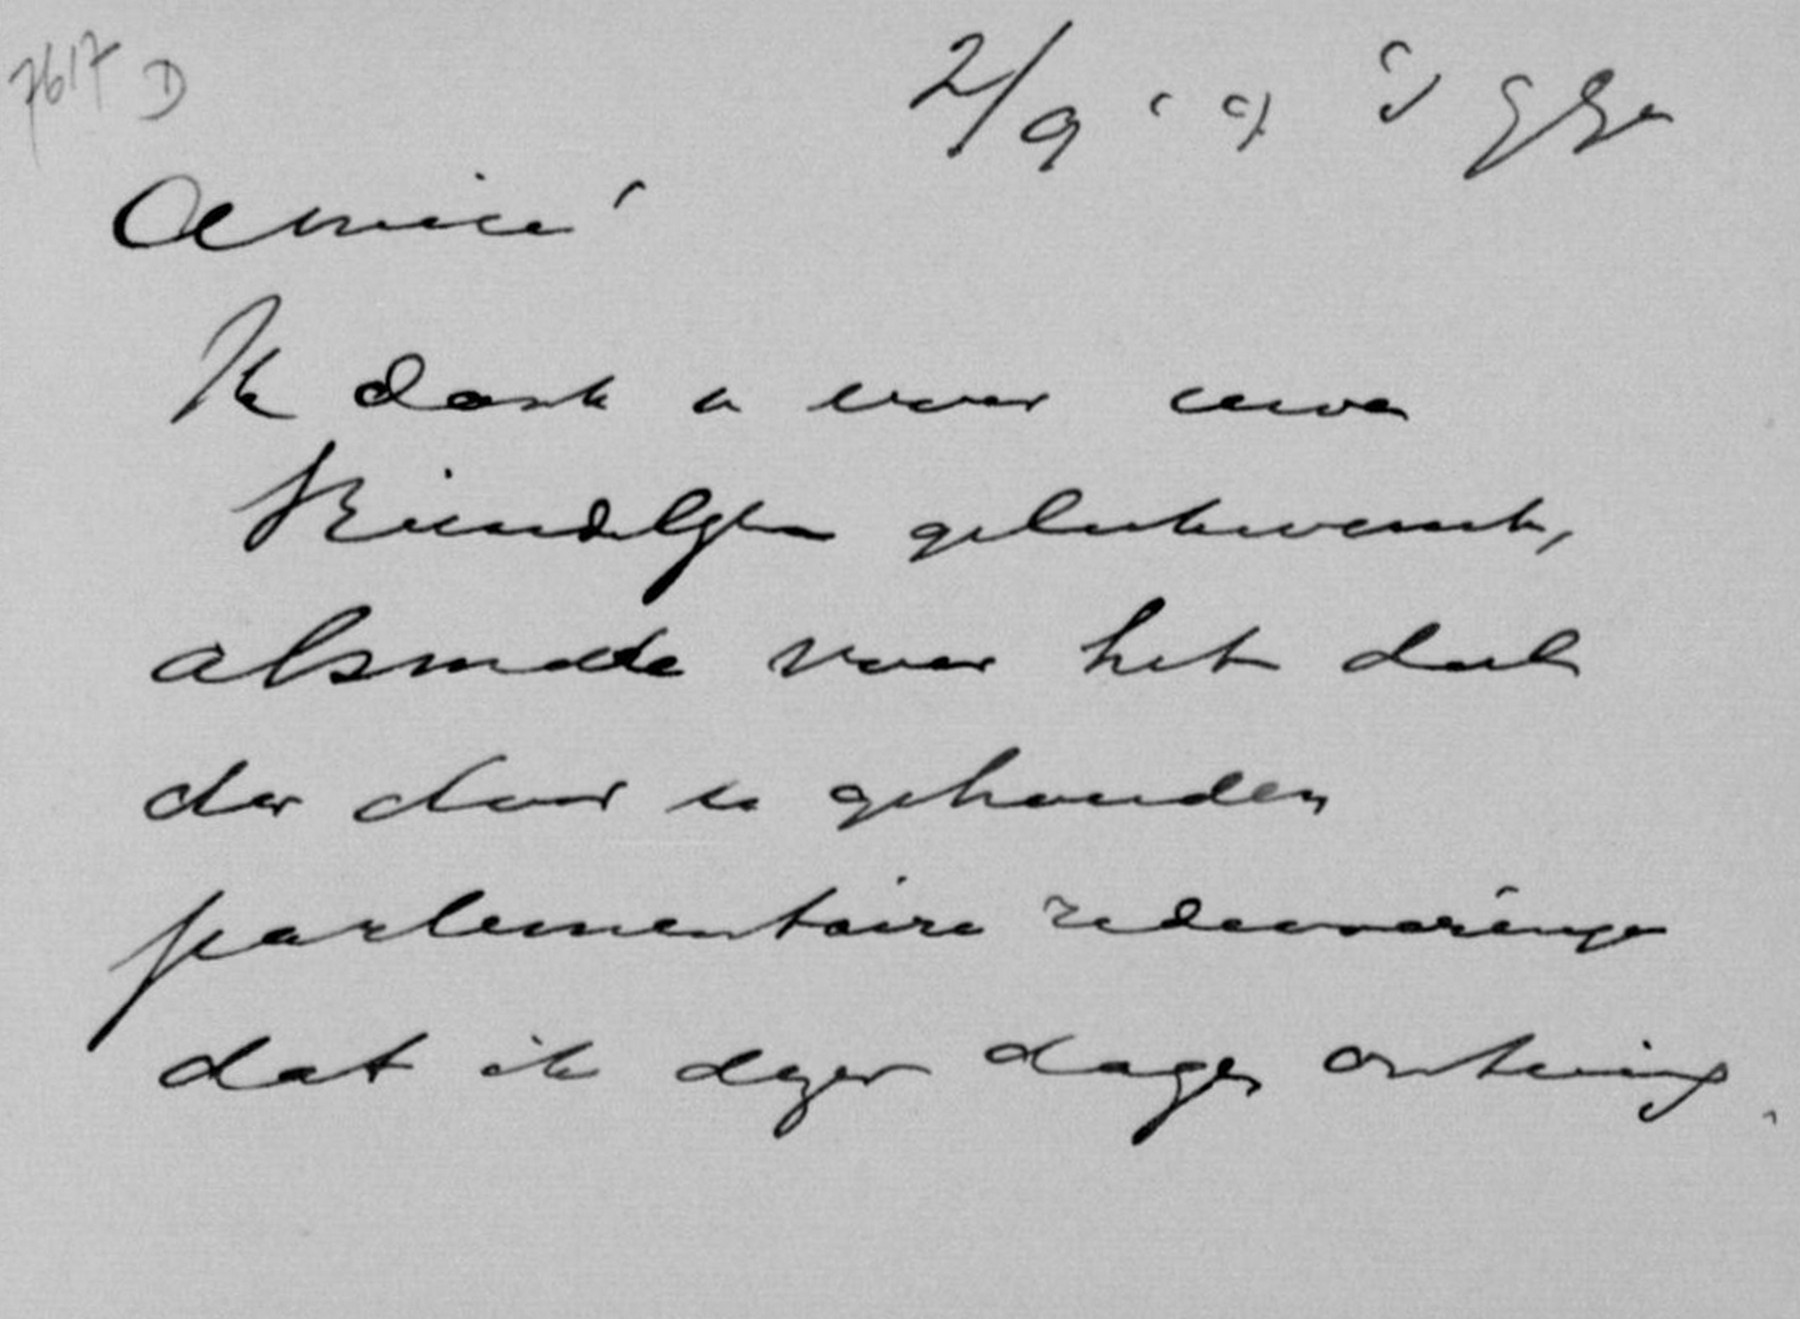 7617 D
2/9 '07
Amice'
Ik dank u voor uwe
vriendelijke gelukwensch,
alsmede voor het deel
der door u gehouden
parlementaire redevoeringen
dat ik dezer dagen ontving.